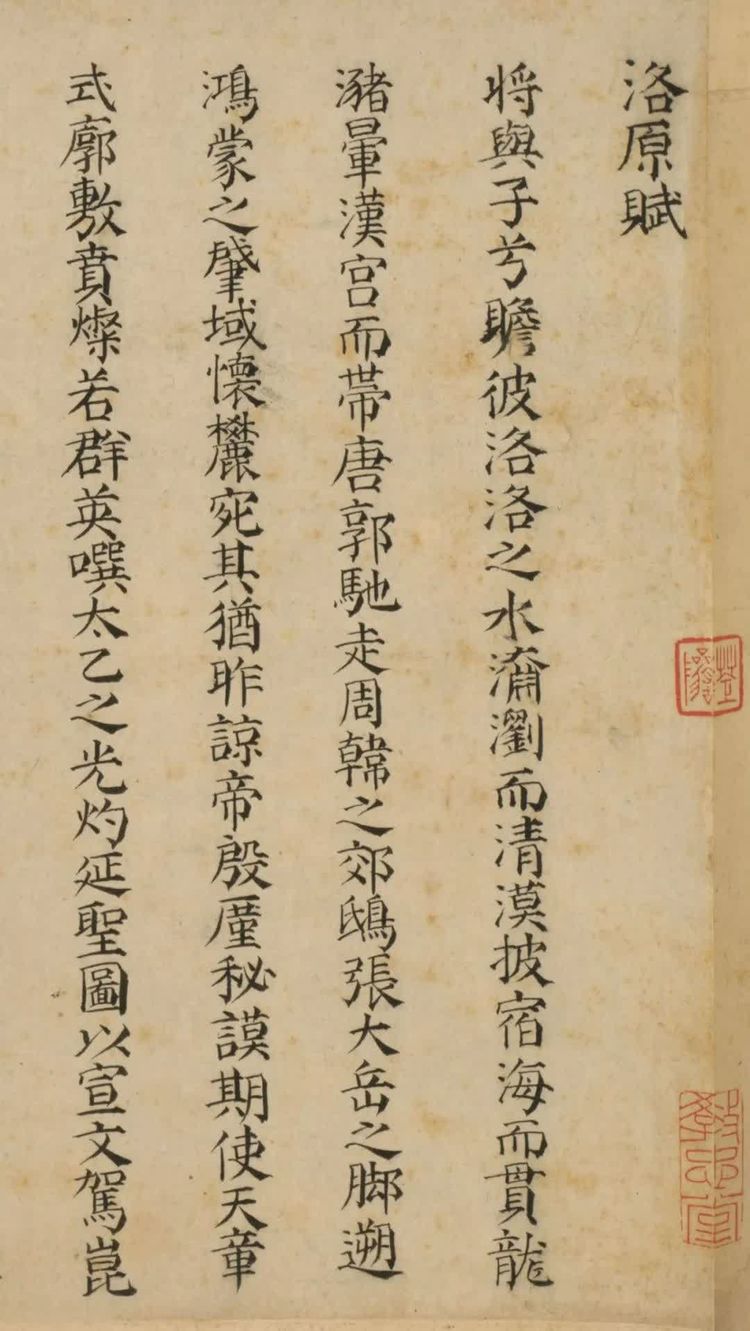 洛原賦
將與子兮瞻彼洛洛之水漪瀏而清漠披宿海而貫龍
瀦暈漢宮而帶唐郭馳走周韓之郊鴟張大岳之脚遡
鴻蒙之肇域懷麓宛其猶昨諒帝殷厪秘謨期使天章
式廓敷賁燦若群英噀太乙之光灼延聖圖以宣文駕崑